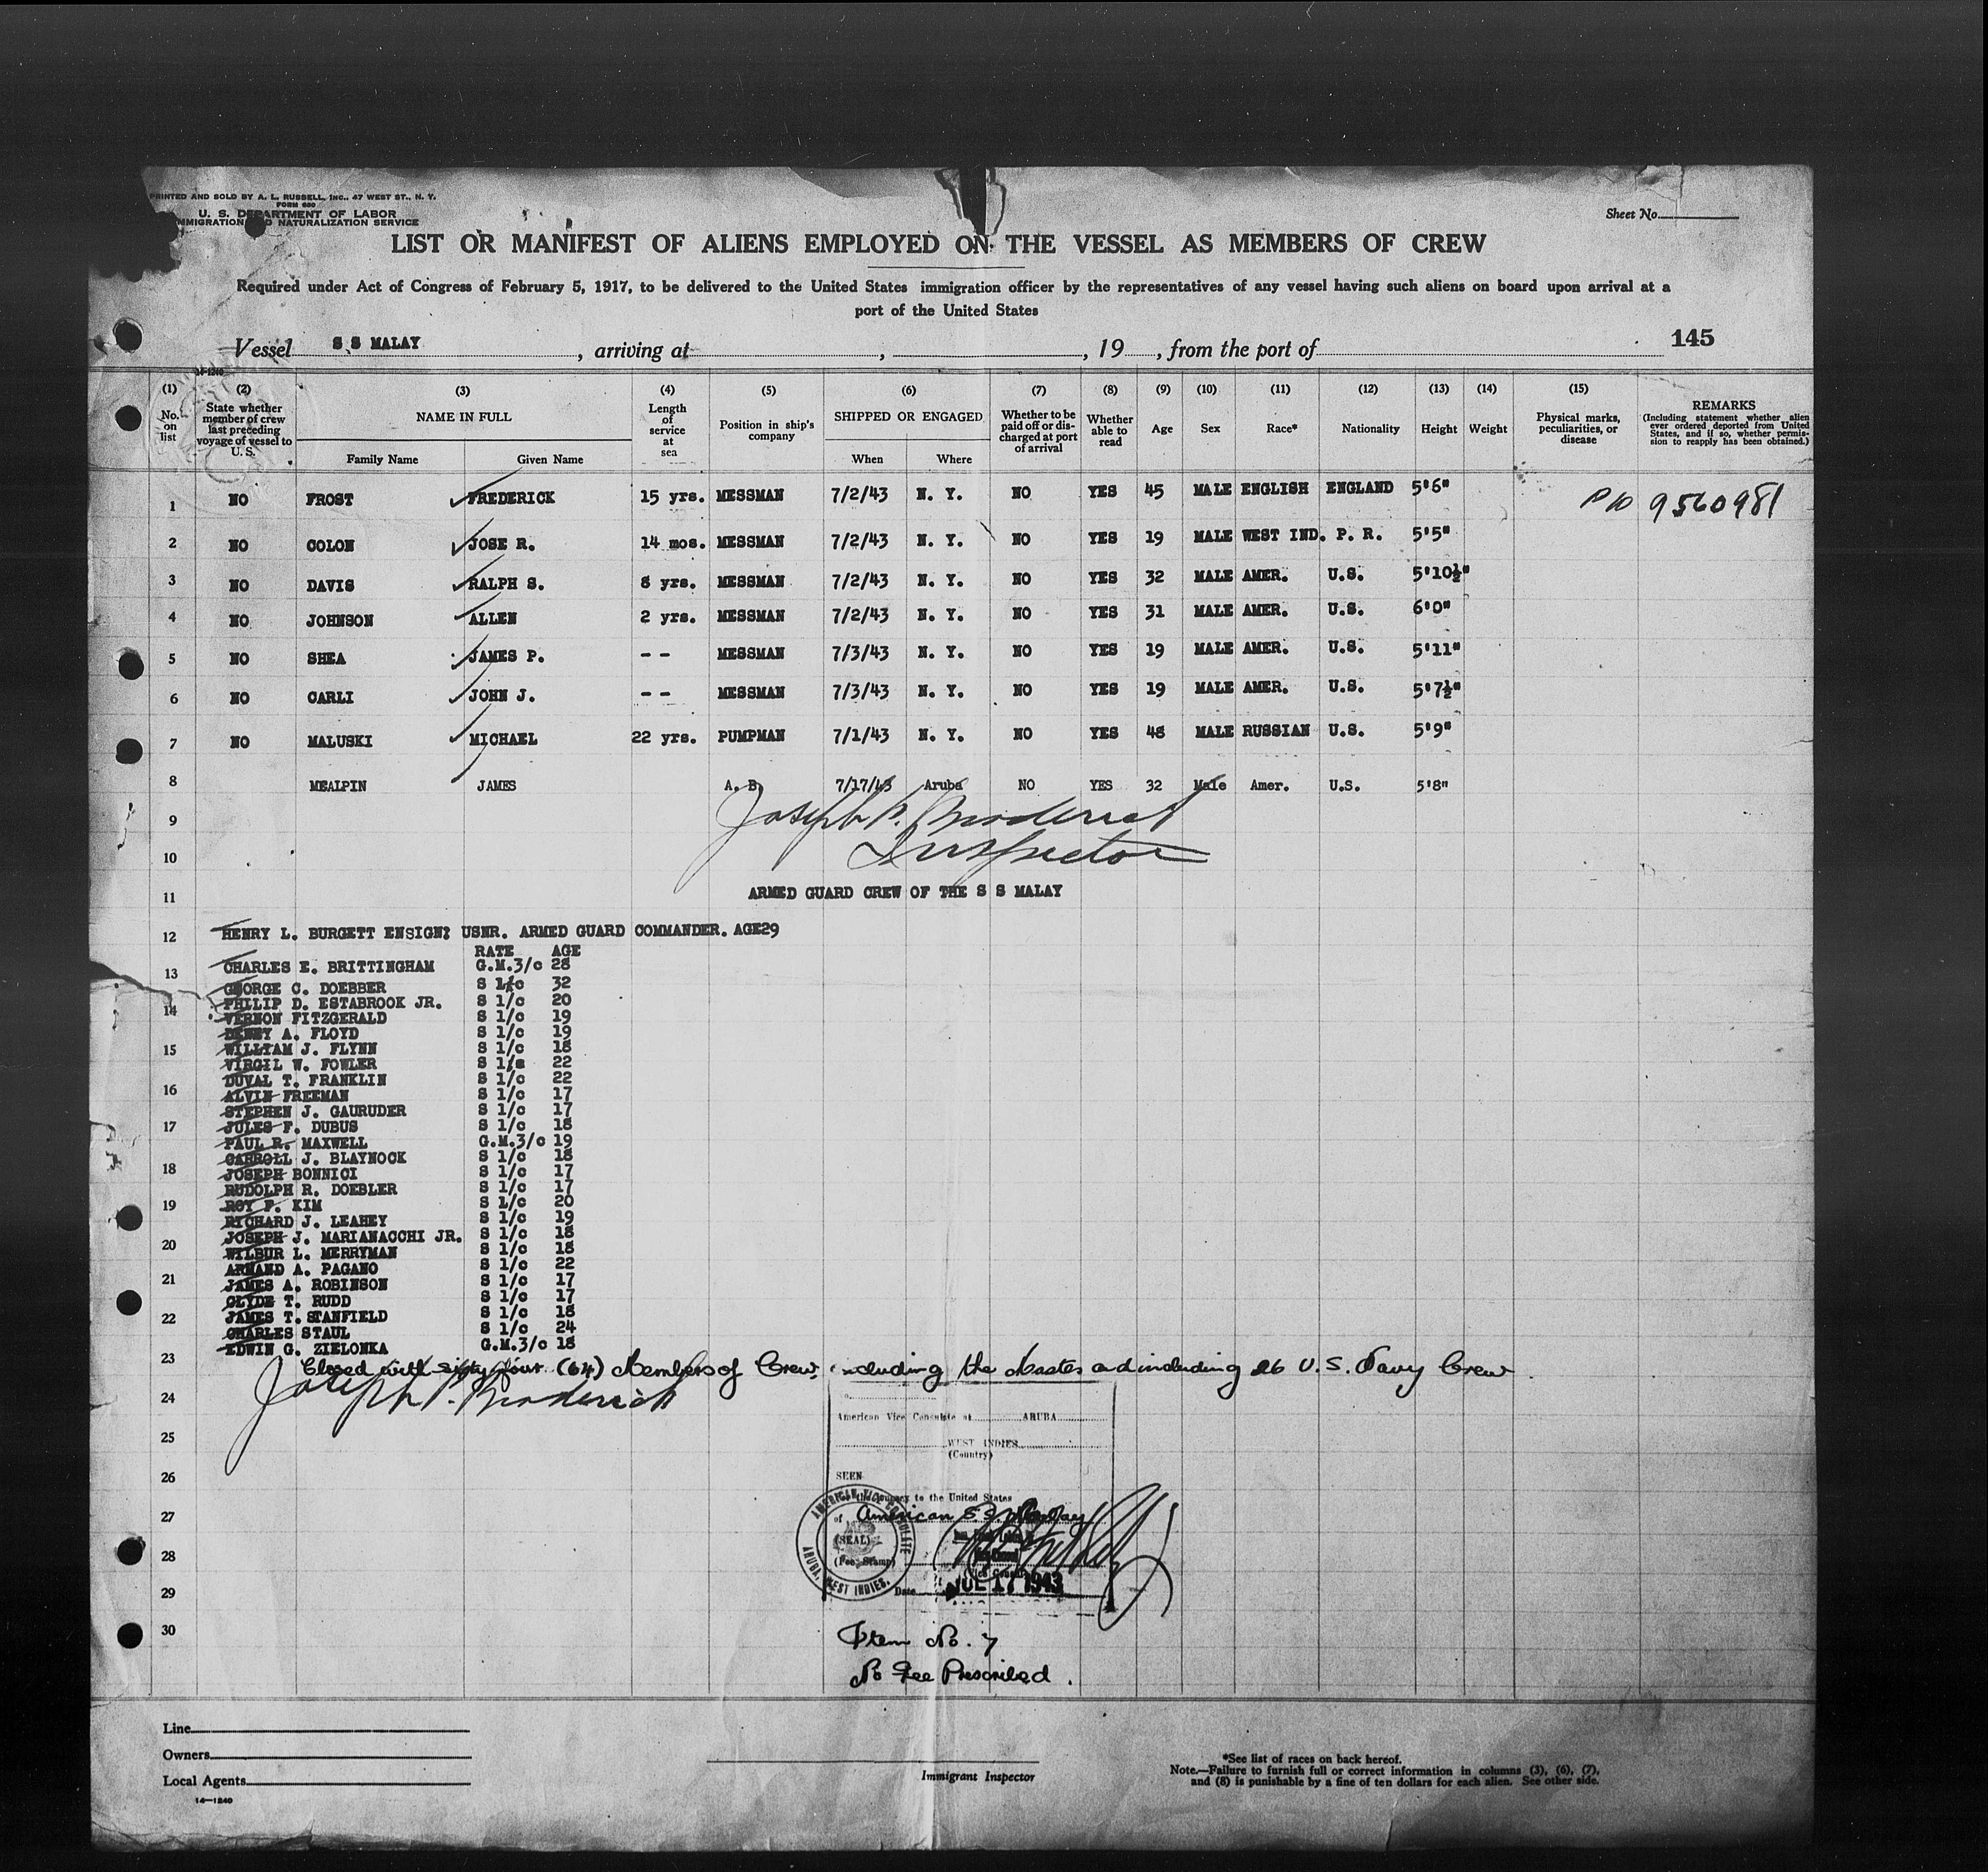 PRINTED AND SOLD BY A. L. RUSSELL, INC., 47 WEST ST., N. Y.
FORM 680
U. S. DEPARTMENT OF LABOR
IMMIGRATION AND NATURALIZATION SERVICE
Sheet No.
LIST OR MANIFEST OF ALIENS EMPLOYED ON THE VESSEL AS MEMBERS OF CREW
Required under Act of Congress of February 5, 1917, to be delivered to the United States immigration officer by the representatives of any vessel having such aliens on board upon arrival at a
port of the United States
Vessel S S MALAY, arriving at , , 19 , from the port of
145
14-1240
(1) No. on list
(2) State whether member of crew last preceding voyage of vessel to U. S.
(3) NAME IN FULL Family Name Given Name
(4) Length of service at sea
(5) Position in ship's company
(6) SHIPPED OR ENGAGED When Where
(7) Whether to be paid off or discharged at port of arrival
(8) Whether able to read
(9) Age
(10) Sex
(11) Race*
(12) Nationality
(13) Height
(14) Weight
(15) Physical marks, peculiarities, or disease
REMARKS (Including statement whether alien ever ordered deported from United States, and if so, whether permission to reapply has been obtained.)
1 NO FROST FREDERICK 15 yrs. MESSMAN 7/2/43 N. Y. NO YES 45 MALE ENGLISH ENGLAND 5'6" 9560981
2 NO COLON JOSE R. 14 mos. MESSMAN 7/2/43 N. Y. NO YES 19 MALE WEST IND. P. R. 5'5"
3 NO DAVIS RALPH S. 8 yrs. MESSMAN 7/2/43 N. Y. NO YES 32 MALE AMER. U.S. 5'10½"
4 NO JOHNSON ALLEN 2 yrs. MESSMAN 7/2/43 N. Y. NO YES 31 MALE AMER. U.S. 6'0"
5 NO SHEA JAMES P. -- MESSMAN 7/3/43 N. Y. NO YES 19 MALE AMER. U.S. 5'11"
6 NO CARLI JOHN J. -- MESSMAN 7/3/43 N. Y. NO YES 19 MALE AMER. U.S. 5'7½"
7 NO MALUSKI MICHAEL 22 yrs. PUMPMAN 7/1/43 N. Y. NO YES 48 MALE RUSSIAN U.S. 5'9"
8 MEALPIN JAMES A. B. 7/17/43 Aruba NO YES 32 Male Amer. U.S. 5'8"
9 Joseph P. Broderick
10 Inspector
11 ARMED GUARD CREW OF THE S S MALAY
12 HENRY L. BURGETT ENSIGN; USNR. ARMED GUARD COMMANDER. AGE29
RATE AGE
13 CHARLES E. BRITTINGHAM G.M.3/c 28
GEORGE C. DOEBBER S 1/c 32
PHILIP D. ESTABROOK JR. S 1/c 20
14 VERNON FITZGERALD S 1/c 19
DENNY A. FLOYD S 1/c 19
15 WILLIAM J. FLYNN S 1/c 18
VIRGIL W. FOWLER S 1/c 22
DUVAL T. FRANKLIN S 1/c 22
16 ALVIN FREEMAN S 1/c 17
STEPHEN J. GAURUDER S 1/c 17
17 JULES F. DUBUS S 1/c 18
PAUL R. MAXWELL G.M.3/c 19
CARROLL J. BLAYNOCK S 1/c 18
18 JOSEPH BONNICI S 1/c 17
RUDOLPH R. DOEBLER S 1/c 17
19 ROY F. KIM S 1/c 20
RICHARD J. LEAHEY S 1/c 19
JOSEPH J. MARIANACCHI JR. S 1/c 18
20 WILBUR L. MERRYMAN S 1/c 18
ARMAND A. PAGANO S 1/c 22
21 JAMES A. ROBINSON S 1/c 17
CLYDE T. RUDD S 1/c 17
22 JAMES T. STANFIELD S 1/c 18
CHARLES STAUL S 1/c 24
EDWIN G. ZIELONKA G.M.3/c 18
23 Closed with sixty four (64) Members of Crew, including the Master and including 26 U. S. Navy Crew.
24 Joseph P. Broderick
American Vice Consulate at ARUBA
25 WEST INDIES
(Country)
26 SEEN
to the United States
27 of American S.S. Malay
AMERICAN VICE CONSULATE ARUBA, WEST INDIES.
(SEAL)
28 (Fee Stamp)
Vice Consul
29 Date JUL 17 1943
30 Item No. 7
No Fee Prescribed.
Line
Owners
Local Agents
14—1240
Immigrant Inspector
*See list of races on back hereof.
Note.—Failure to furnish full or correct information in columns (3), (6), (7),
and (8) is punishable by a fine of ten dollars for each alien. See other side.